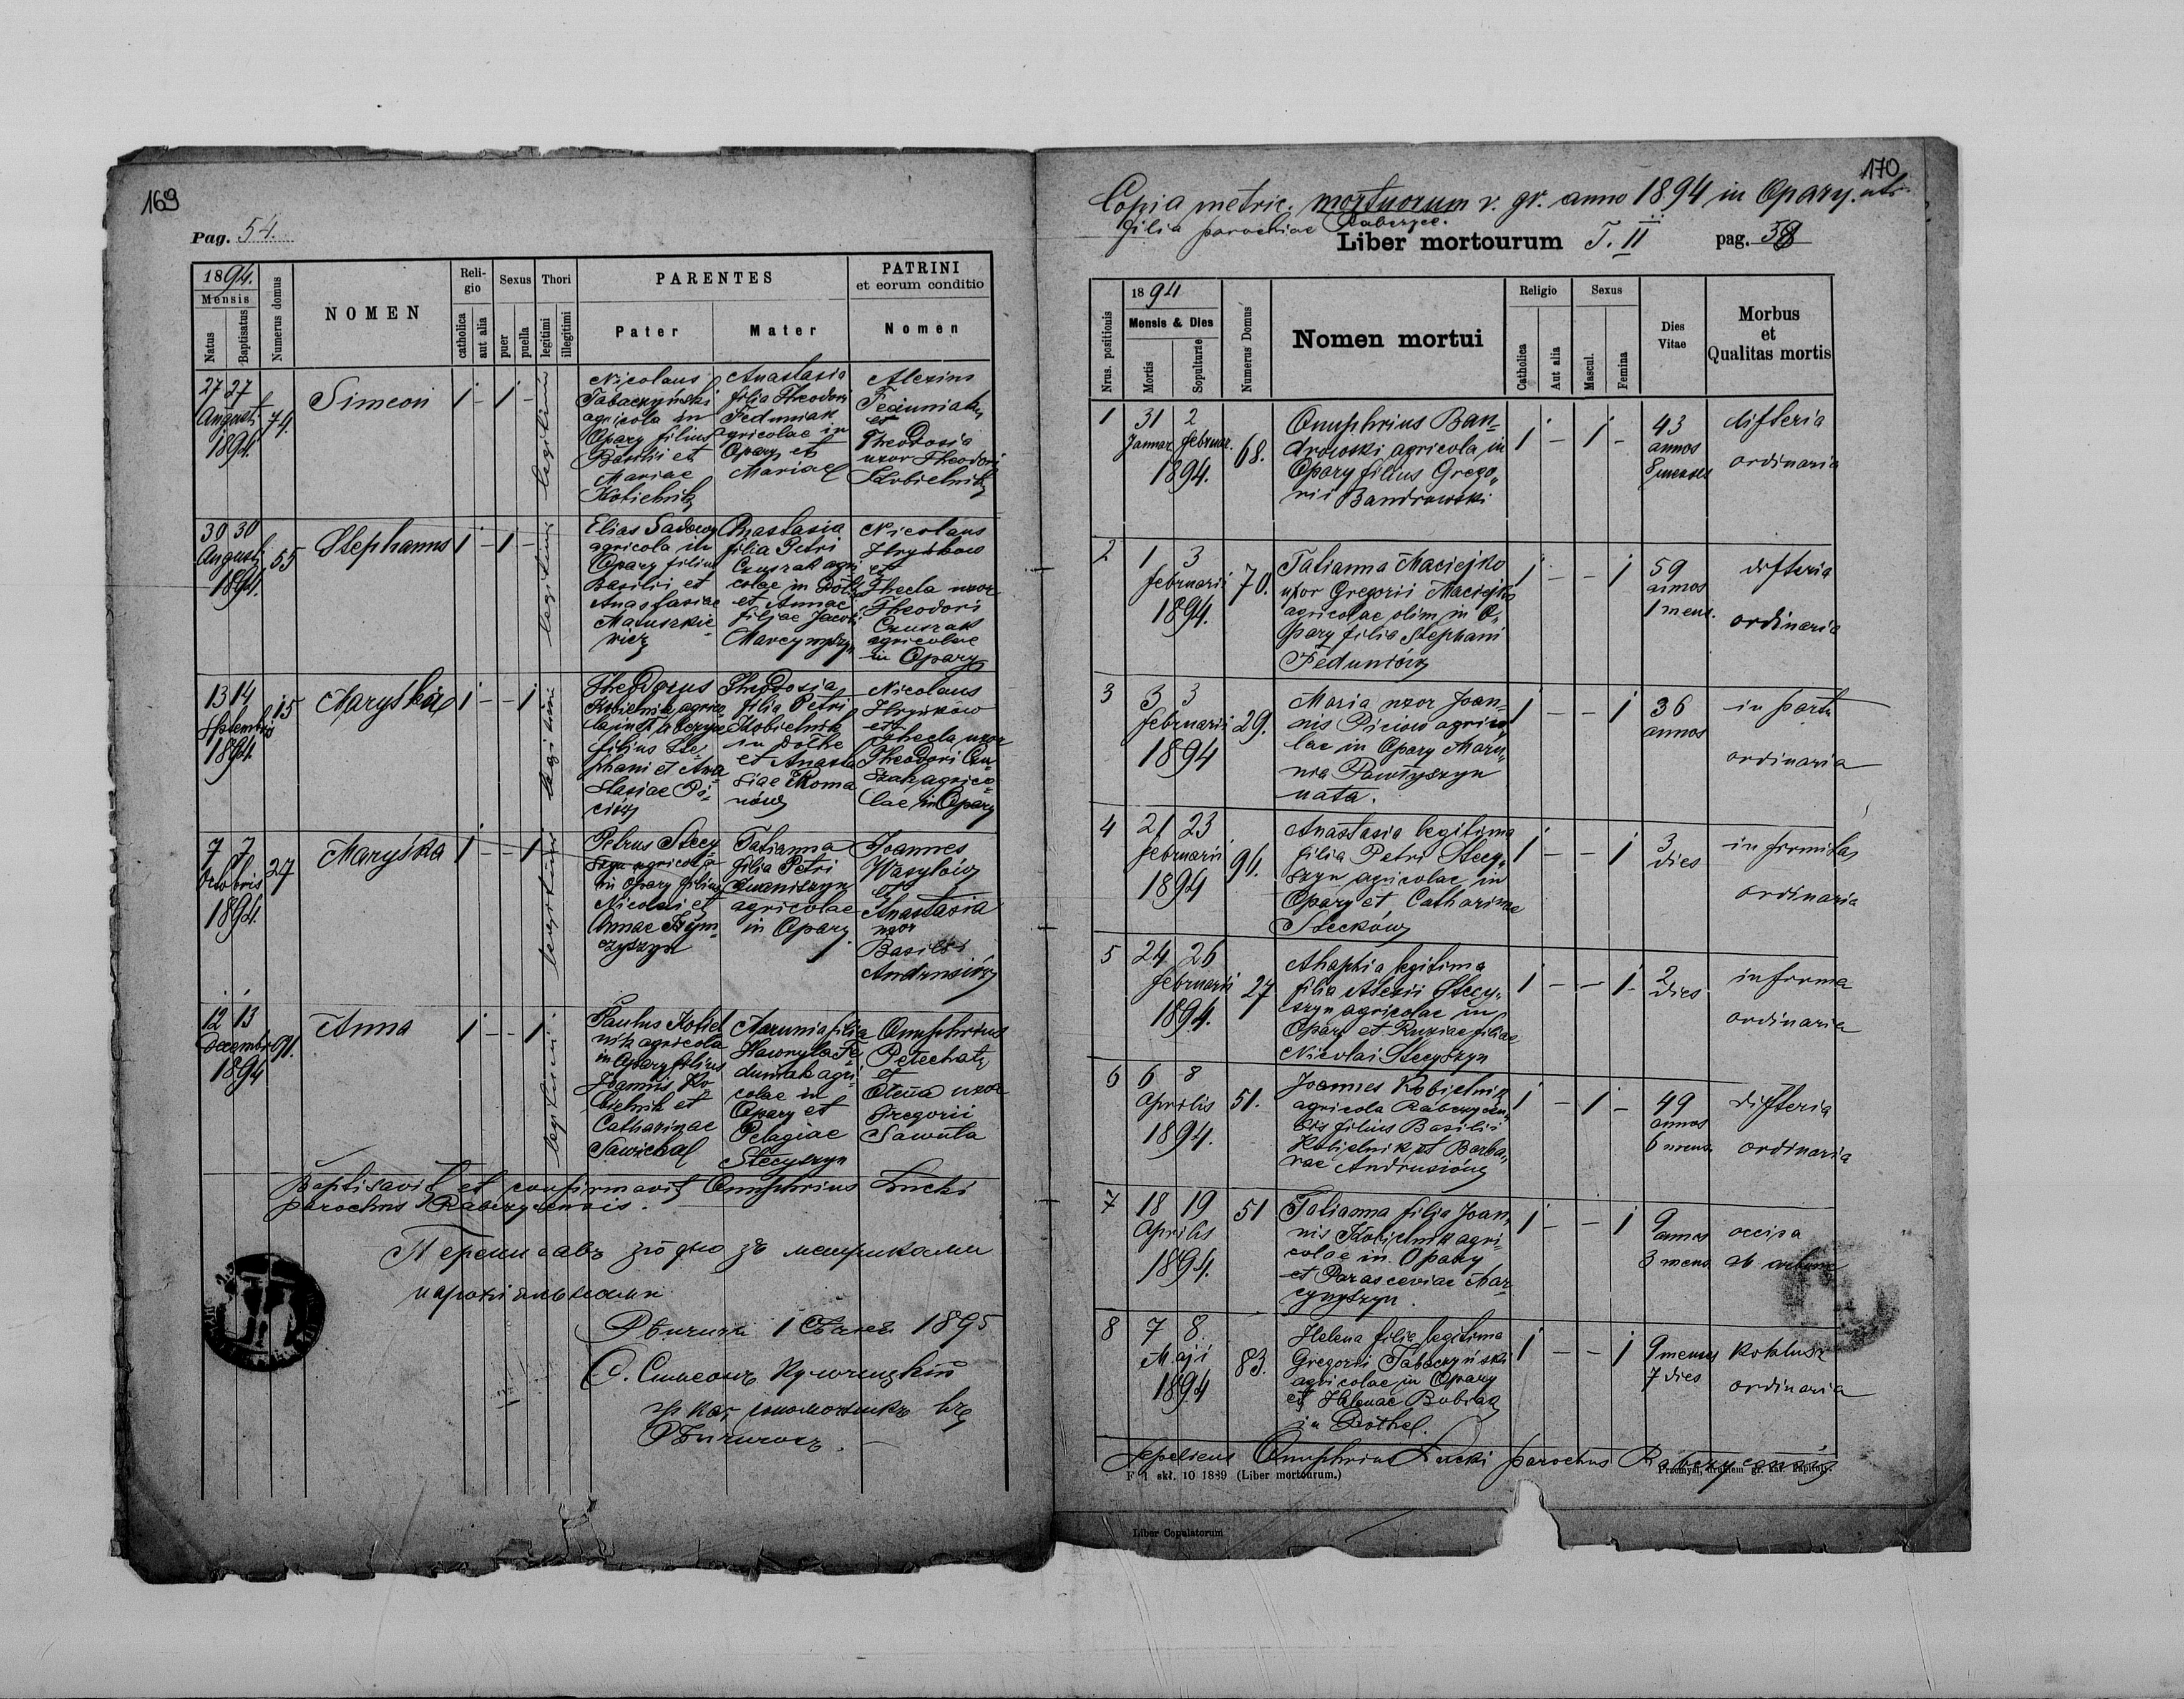 169
Pag. 54.
1894.
Mensis
Natus
Baptisatus
Numerus domus
NOMEN
Reli-
gio
catholica
aut alia
Sexus
puer
puella
Thori
legitimi
illegitimi
PARENTES
Pater
Mater
PATRINI
et eorum conditio
Nomen
27 27
Augusti
1894.
74.
Simeon
1 - 1 -
legitimi
Nicolaus
Tabaczyński
agricola in
Opary filius
Basilii et
Mariae
Kobielnik
Anastasia
filia Theodori
Feduniak
agricolae in
Opary et
Mariae
Alexius
Feduniak
et
Theodosia
uxor Theodori
Kobielnik
30 30
Augusti
1894.
55
Stephanus
1 - 1 -
legitimi
Elias Sadowy
agricola in
Opary filius
Basilii et
Anastasiae
Matuszkie
wicz
Anastasia
filia Petri
Czuszak agri
colae in Dołhe
et Annae
filiae Jacobi
Marcynyszyn
Nicolaus
Hryńków
et
Thecla uxor
Theodori
Czuszak
agricolae
in Opary
13 14
Septembris
1894.
15
Maryśka
1 - - 1
legitimi
Theodorus
Kobielnik agrico
la in
filius Ste
phani et Ana
stasiae Pi-
ciów
Theodosia
filia Petri
Kobielnik
in Dołhe
et Anasta
siae Roma
nów
Nicolaus
Hryńków
et
Thecla uxor
Theodori Czu
szak agrico
lae in Opary
7 7
Octobris
1894.
27
Maryśka
1 - - 1
legitimi
Petrus Stecy-
szyn agricola
in Opary filius
Nicolai et
Annae Hrym-
czyszyn
Tatianna
filia Petri
Iwaniszyn
agricolae
in Opary.
Joannes
Wasylów
et
Anastasia
uxor
Basilii
Andrusiów
12 13
Decembr
1894
91.
Anna
1 - - 1
legitimi
Paulus Kobiel
nik agricola
in Opary filius
Joannis Ko
bielnik et
Catharinae
Sawicka
Marunia filia
Hawryla Fe
duniak agri-
colae in
Opary et
Pelagiae
Stecyszyn
Onuphrius
Petechaty
et
Olena uxor
Gregorii
Sawula
Baptisavit et confirmavit Onuphrius Lucki
parochus Rabczycensis.
Переписавъ згôдно зъ метриками
парохіяльными
1895
170
Copia metric. mortuorum r. gr. anno 1894 in Opary. uti
filia parochiae Rabczyce.
Liber mortourum T. II
pag. 38
Nrus. positionis
1894
Mensis & Dies
Mortis
Sepulturae
Numerus Domus
Nomen mortui
Religio
Catholica
Aut alia
Sexus
Mascul.
Femina
Dies
Vitae
Morbus
et
Qualitas mortis
1
31 2
Januar. Februar.
1894.
68.
Onuphrius Ban-
drowski agricola in
Opary filius Grego-
rii Bandrowski
1 - 1 -
43
annos
8 menses
difteria
ordinaria
2
1 3
Februarii
1894.
70.
Tatianna Maciejko
uxor Gregorii Maciejko
agricolae olim in O-
pary filia Stephani
Feduniów
1 - - 1
59
annos
1 mens.
difteria
ordinaria
3
3 3
Februarii
1894
29.
Maria uxor Joan-
nis Piciów agrico
lae in Opary Maru-
nia Pawłyszyn
nata.
1 - - 1
36
annos
in partu
ordinaria
4
21 23
Februarii
1894
96.
Anastasia legitima
filia Petri Stecy-
szyn agricolae in
Opary et Catharinae
Stecków
1 - - 1
3
dies
infirmitas
ordinaria
5
24 26
Februarii
1894.
27
Ahaphia legitima
filia Alexii Stecy-
szyn agricolae in
Opary et Ruziae filiae
Nicolai Stecyszyn
1 - - 1-
2
dies
infirma
ordinaria
6
6 8
Aprilis
1894.
51.
Joannes Kobielnik
agricola Rabczycen-
sis filius Basilii
Kobielnik et Barba-
rae Andrusiów
1 - 1 -
49
annos
6 mens.
difteria
ordinaria
7
18 19
Aprilis
1894.
51
Tatianna filia Joan-
nis Kobielnik agri-
colae in Opary
et Parasceviae Mar
cynyszyn.
1 - - 1
9
annos
3 mens
occisa
ab arbore
8
7 8.
Maji
1894
83.
Helena filia legitima
Gregorii Tabaczyński
agricolae in Opary
et Helenae Bubniak
in
1 - - 1
9 menses
7 dies
koklusz
ordinaria
Sepeliens Onuphrius Lucki parochus Rabczycensis
F 1 skł. 10 1889 (Liber mortourum.)
Przemyśl, drukiem gr. kat. kapituły.
Liber Copulatorum